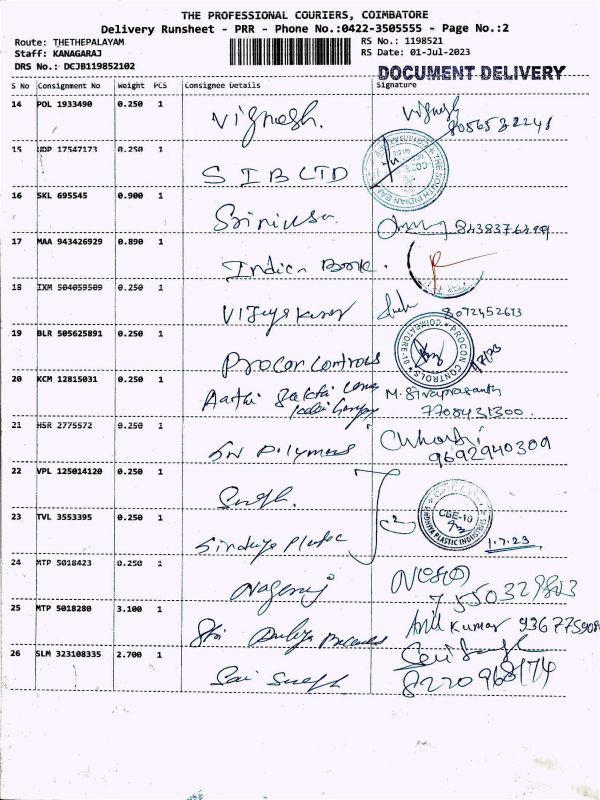 THE PROFESSIONAL COURIERS, COIMBATORE
Delivery Runsheet - PRR - Phone No.:0422-3505555 - Page No.:2
Route: THETHEPALAYAM RS No.: 1198521
Staff: KANAGARAJ RS Date: 01-Jul-2023
DRS No.: DCJB119852102
DOCUMENT DELIVERY
S No Consignment No Weight PCS Consignee Details Signature
14 POL 1933490 0.250 1
Vignesh. Vignesh
8056532241
15 UDP 17547173 0.250 1
SIB LTD
THE SOUTH INDIAN BANK
16 SKL 695545 0.900 1
Srinivasa
17 MAA 943426929 0.890 1
Indian Bank.
18 IXM 504059509 0.250 1
Vijayakumar 8072452613
19 BLR 505625891 0.250 1
Procon Controls PROCON CONTROLS COIMBATORE
1/7/23
20 KCM 12815031 0.250 1
Aarthi Sakthi M. Sivaprasanth
7708431300.
21 HSR 2775572 0.250 1
9692940309
22 VPL 125014120 0.250 1
23 TVL 3553395 0.250 1
CBE-10
PLASTIC INDUSTRIES
1.7.23
24 MTP 5018423 0.250 1
Nagaraj
25 MTP 5018280 3.100 1
Sri Anil Kumar
26 SLM 323108335 2.700 1
Sai 8220968174